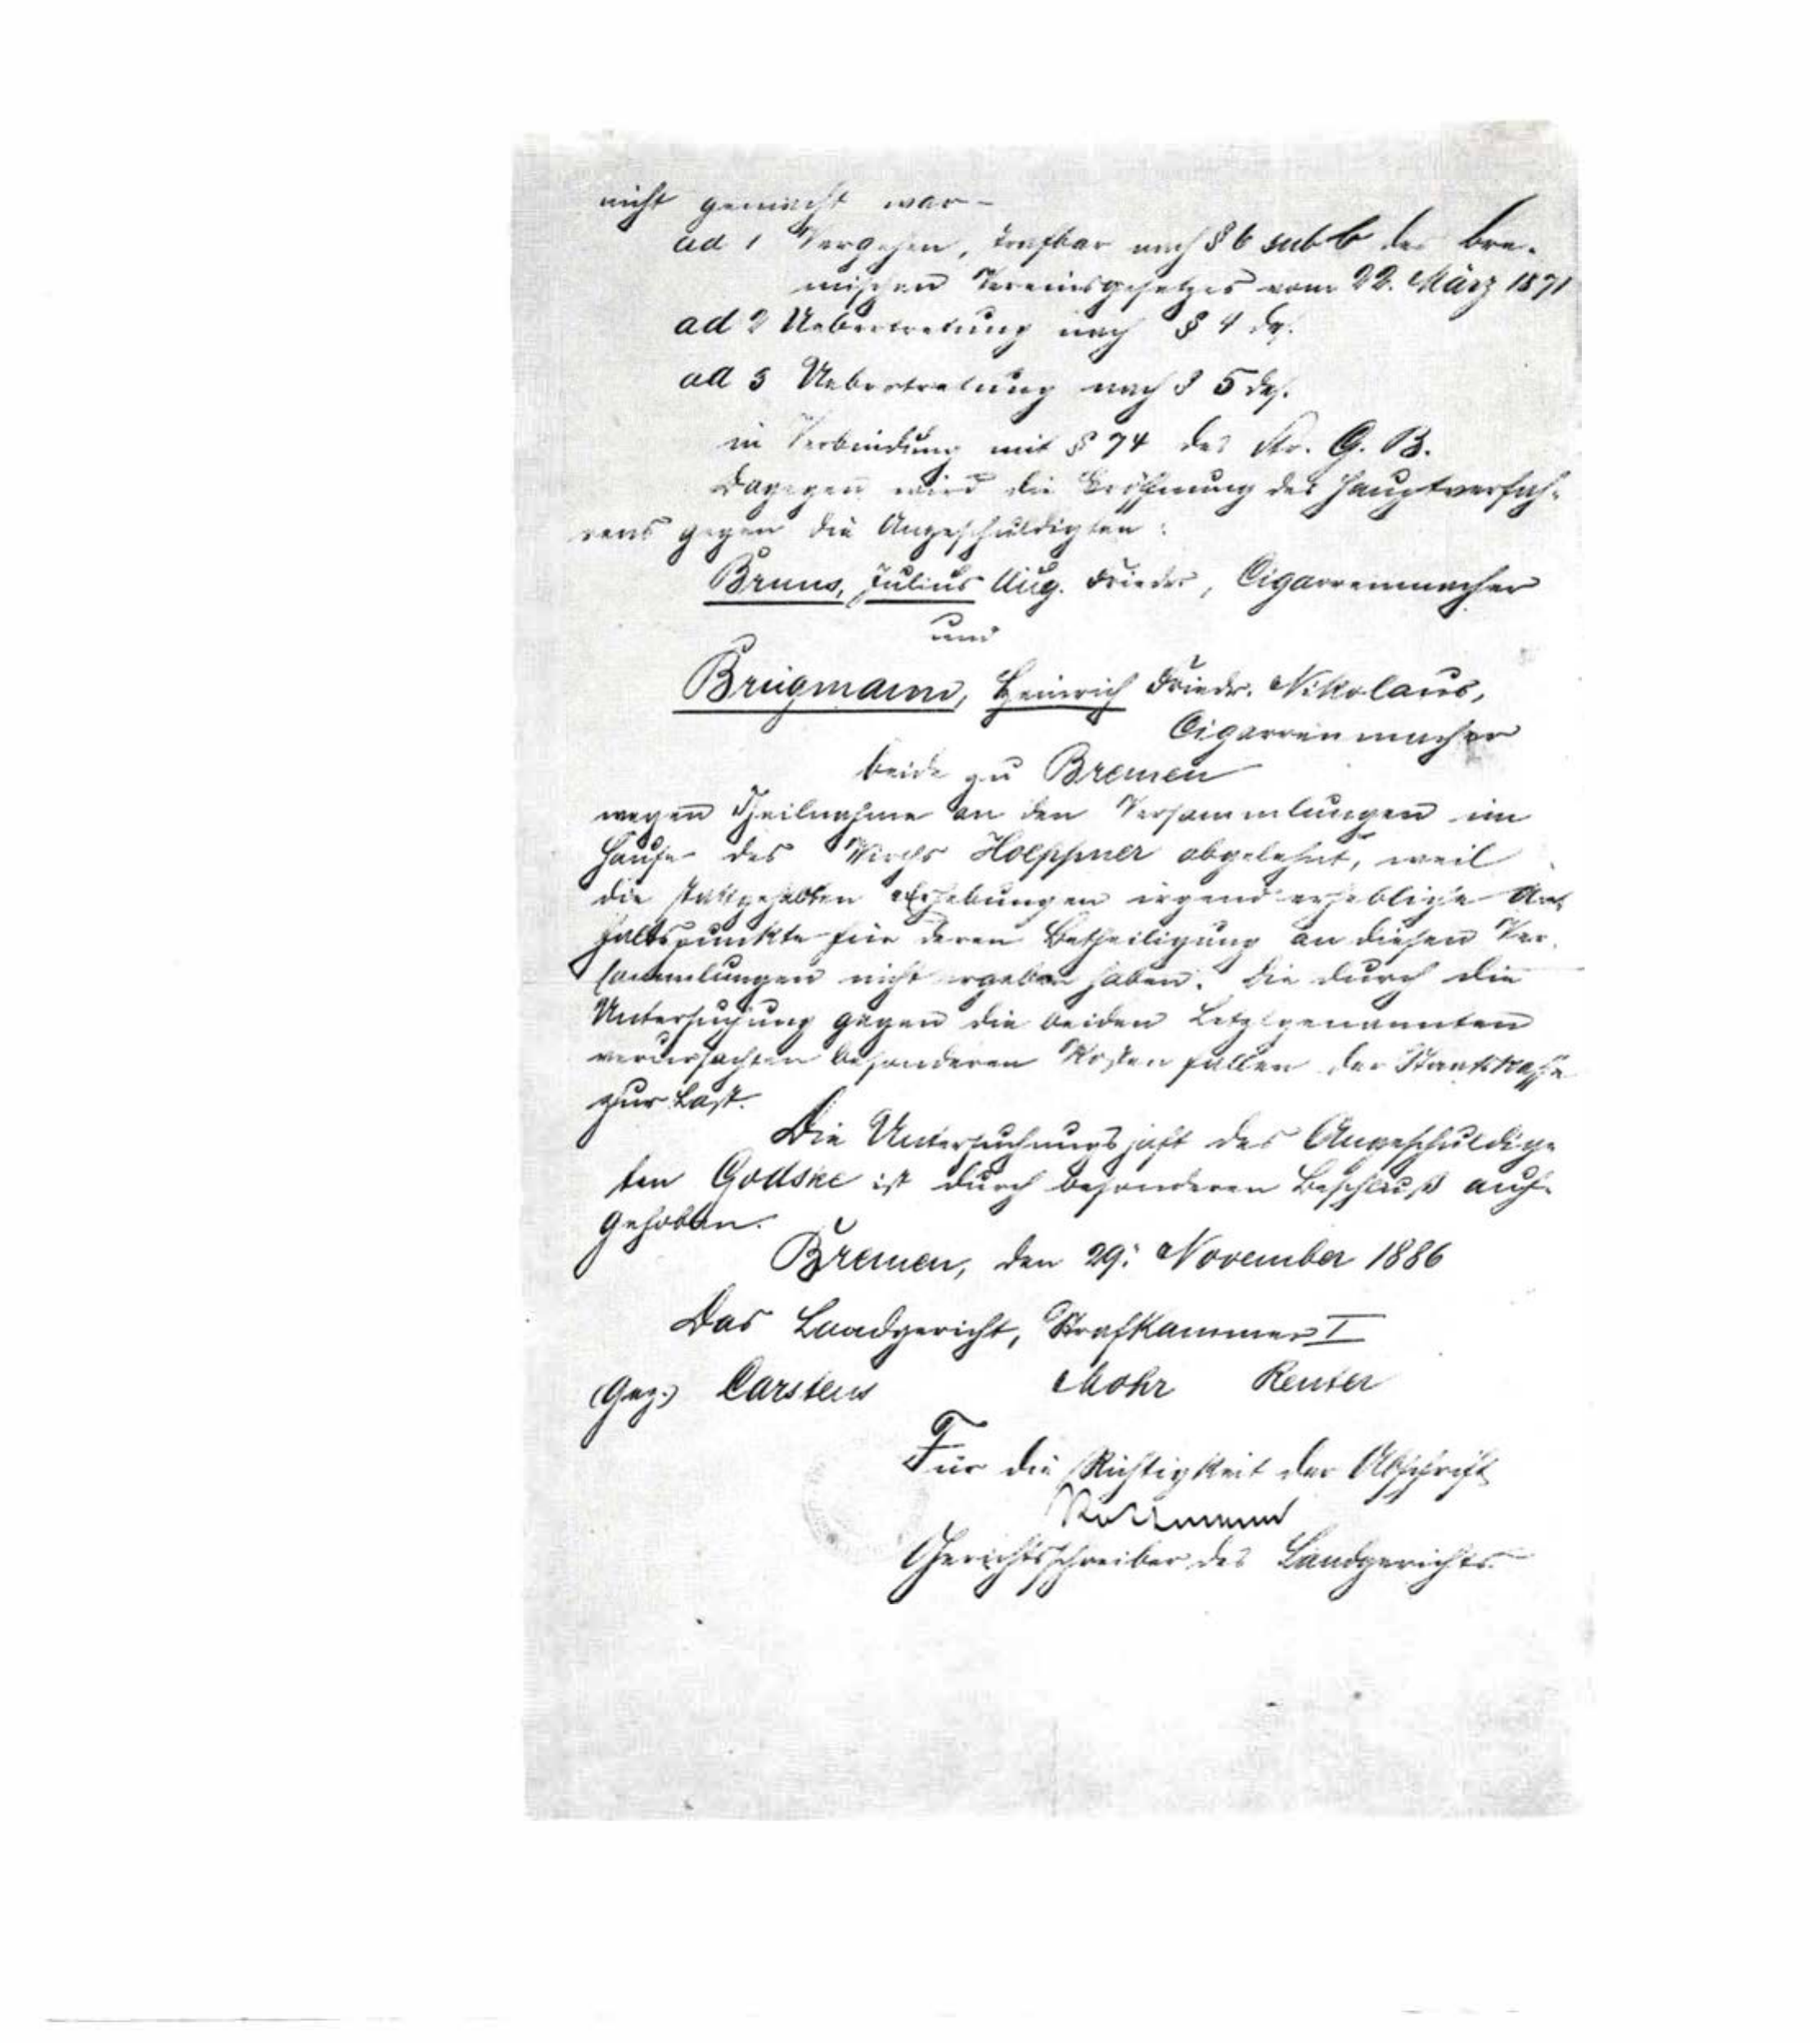 nicht gemacht war –
ad 1 Vergehen, strafbar nach § 6 sub b des bre-
mischen Vereinsgesetzes vom 22. März 1871
ad 2 Uebertretung nach § 4 das.
ad 3 Uebertretung nach § 5 das.
in Verbindung mit § 74 des Str. G. B.
Dagegen wird die Eröffnung des Hauptverfah-
rens gegen die Angeschuldigten:
Bruns, Julius Aug. Friedr, Cigarrenmacher
und
Brügmann, Heinrich Friedr. Nikolaus,
Cigarrenmacher
beide zu Bremen
wegen Theilnahme an den Versammlungen im
Hause des Wirths Hoeppner abgelehnt, weil
die stattgehabten Erhebungen irgend erhebliche An-
haltspunkte für deren Betheiligung an diesen Ver-
sammlungen nicht ergeben haben. Die durch die
Untersuchung gegen die beiden Letztgenannten
verursachten besonderen Kosten fallen der Staatskasse
zur Last.
Die Untersuchungshaft des Angeschuldig-
ten Godske ist durch besonderen Beschluß auf-
gehoben.
Bremen, den 29. November 1886
Das Landgericht, Strafkammer I
(gez.) Carstens Mohr Reuter
Für die Richtigkeit der Abschrift
Gerichtsschreiber des Landgerichts